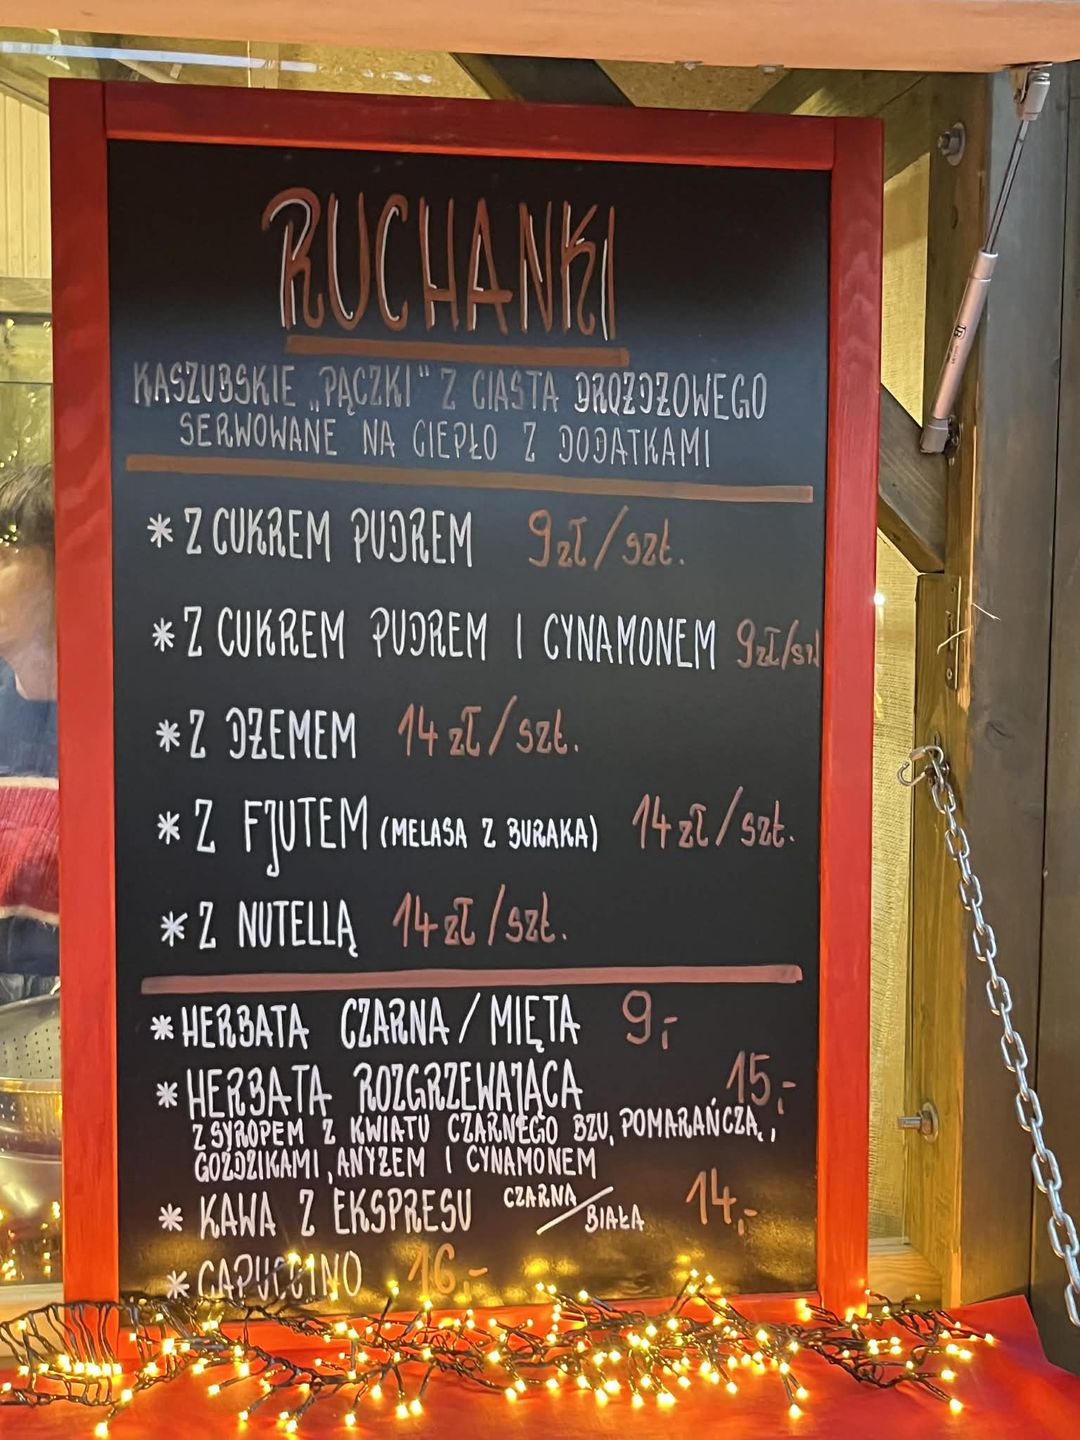 RUCHANKI
KASZUBSKIE „PĄCZKI" Z CIASTA DROŻDŻOWEGO
SERWOWANE NA CIEPŁO Z DODATKAMI
* Z CUKREM PUDREM 9zł/szt.
* Z CUKREM PUDREM I CYNAMONEM 9zł/szt
* Z DŻEMEM 14 zł/szt.
* Z FJUTEM (MELASA Z BURAKA) 14 zł/szt.
* Z NUTELLĄ 14 zł/szt.
* HERBATA CZARNA / MIĘTA 9,-
* HERBATA ROZGRZEWAJĄCA 15,-
Z SYROPEM Z KWIATU CZARNEGO BZU, POMARAŃCZĄ,
GOŹDZIKAMI, ANYŻEM I CYNAMONEM
* KAWA Z EKSPRESU CZARNA/BIAŁA 14,-
* CAPUCCINO 16,-